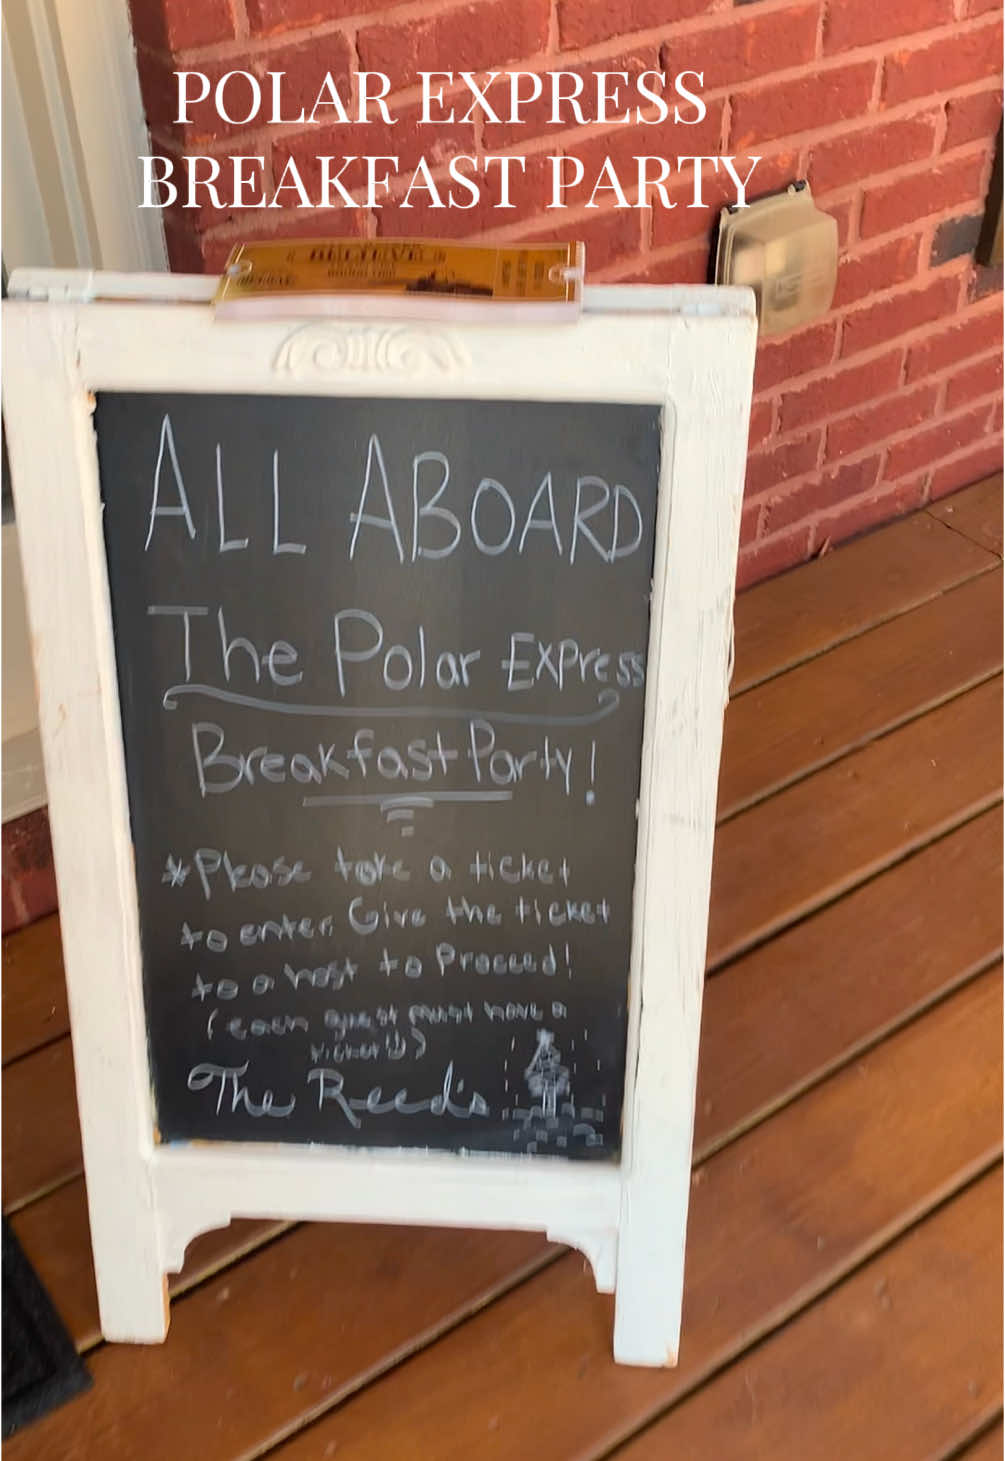 POLAR EXPRESS
BREAKFAST PARTY
BELIEVE
ALL ABOARD
The Polar Express
Breakfast Party!
*Please take a ticket
to enter. Give the ticket
to a host to Proceed!
(each guest must have a
ticket
The Reed's